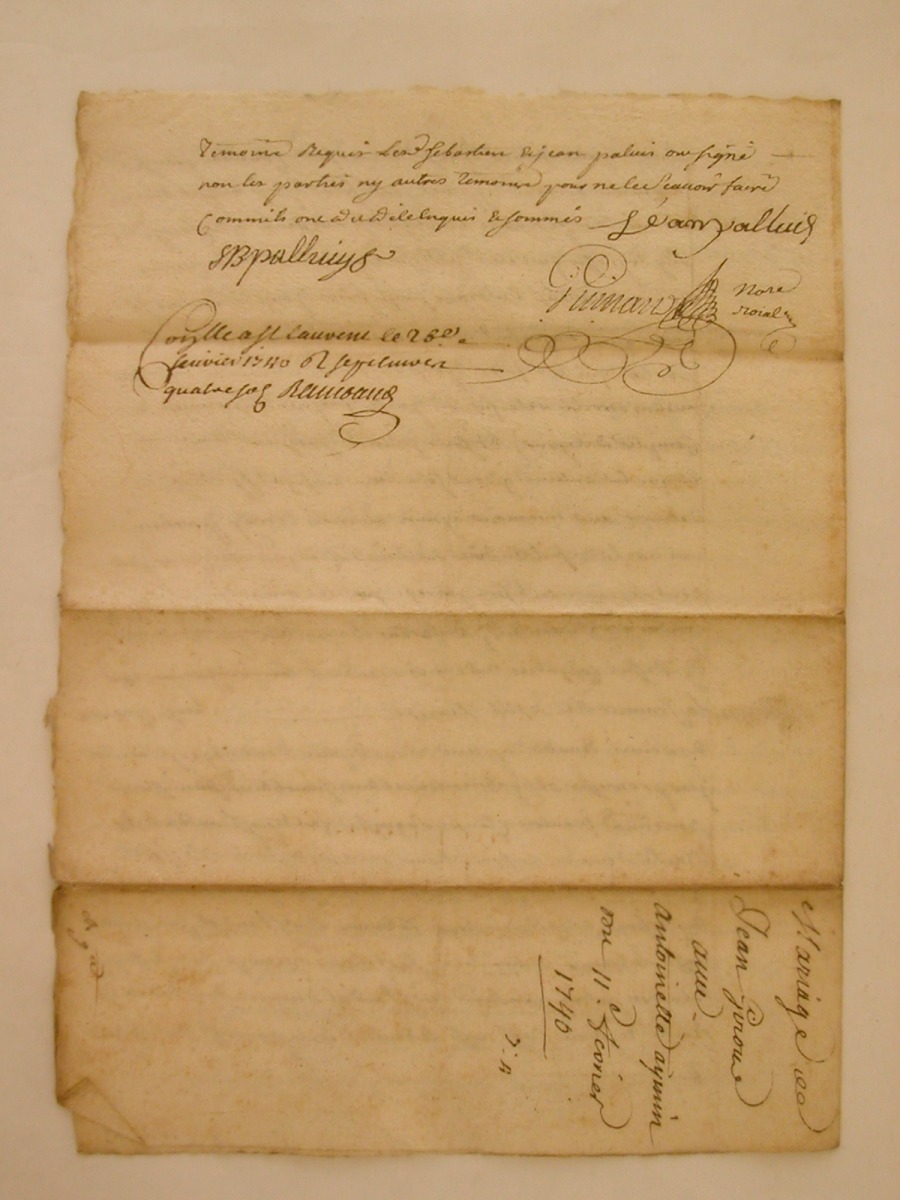 Temoins Requis Les Sebastien & jean paluis ont signé
non les parties ny autres Temoins pour ne le sçauoir faire
Comme ils ont dit de ce Enquis & sommés Jean palluis
SB palluiys
Not.re
roial
Con.lle a St Laurent le 26.e
feuvrier 1740
quatre sols
Mariage de
Jean Giroud
auec
antoinette aymin
du 11.e Fevrier
1740